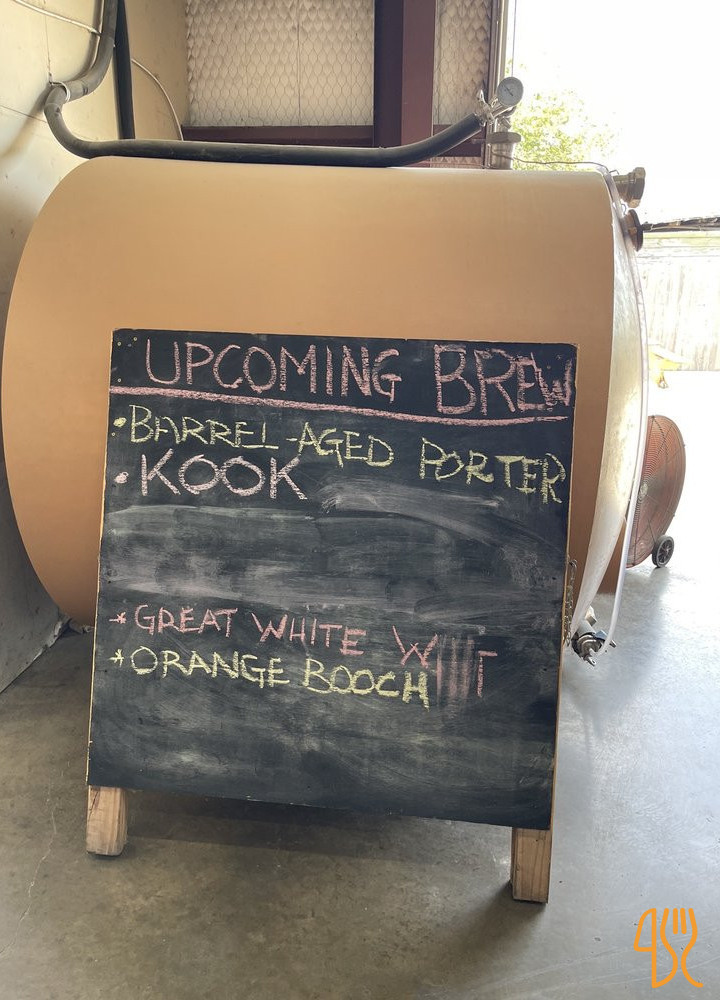 UPCOMING BREW
• BARREL-AGED PORTER
• KOOK
* GREAT WHITE WIT
* ORANGE BOOCH